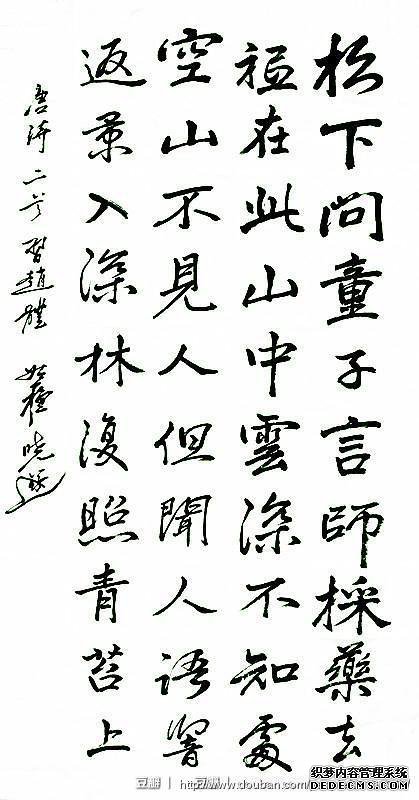 松下問童子言師採藥去
祗在此山中雲深不知處
空山不見人但聞人語響
返景入深林復照青苔上
唐诗二首 習趙體
豆瓣 http://www.douban.com/
织梦内容管理系统
DEDECMS.COM